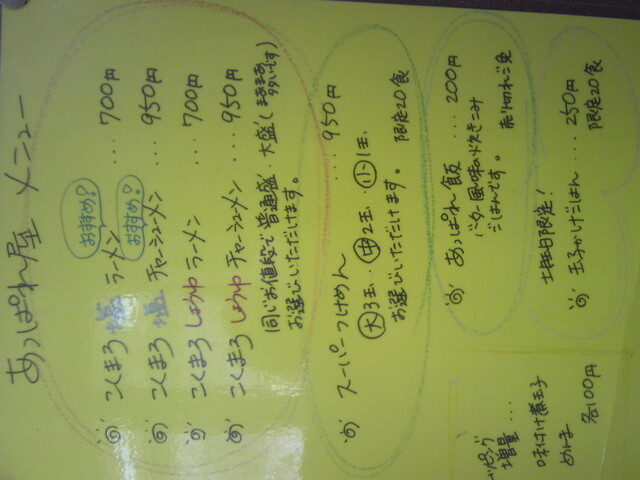 あっぱれ屋 メニュー
こくまろ 塩 ラーメン ・・・ 700円
おすすめ?
こくまろ 塩 チャーシューメン ・・・ 950円
おすすめ?
こくまろ しょうゆ ラーメン ・・・ 700円
こくまろ しょうゆ チャーシューメン ・・・ 950円
同じお値段で 普通盛 大盛(まあまあ多いです)
お選びいただけます。
スーパーつけめん ・・・ 950円
大3玉・中2玉・小1玉
お選びいただけます。 限定20食
あっぱれ飯 ・・・・ 200円
バター風味の炊きこみ
ごはんです。 売り切れご免
土曜日限定!
玉子かけごはん ・・・ 250円
限定20食
トッピング
増量・・・
味付け煮玉子
めんま 各100円